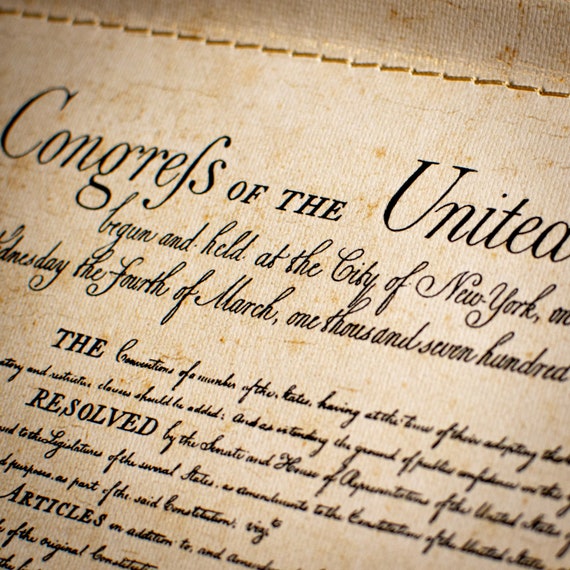 Congreſs OF THE United
begun and held at the City of New-York, on
the Fourth of March, one thousand seven hundred
THE Conventions of a number of the States, having at the time of their adopting the
and restrictive clauses should be added: And as extending the ground of public confidence in the
RESOLVED by the Senate and House of Representatives of the United States of
to the Legislatures of the several States, as amendments to the Constitution of the United States
purposes, as part of the said Constitution; viz.
ARTICLES in addition to, and
of the original Constitution